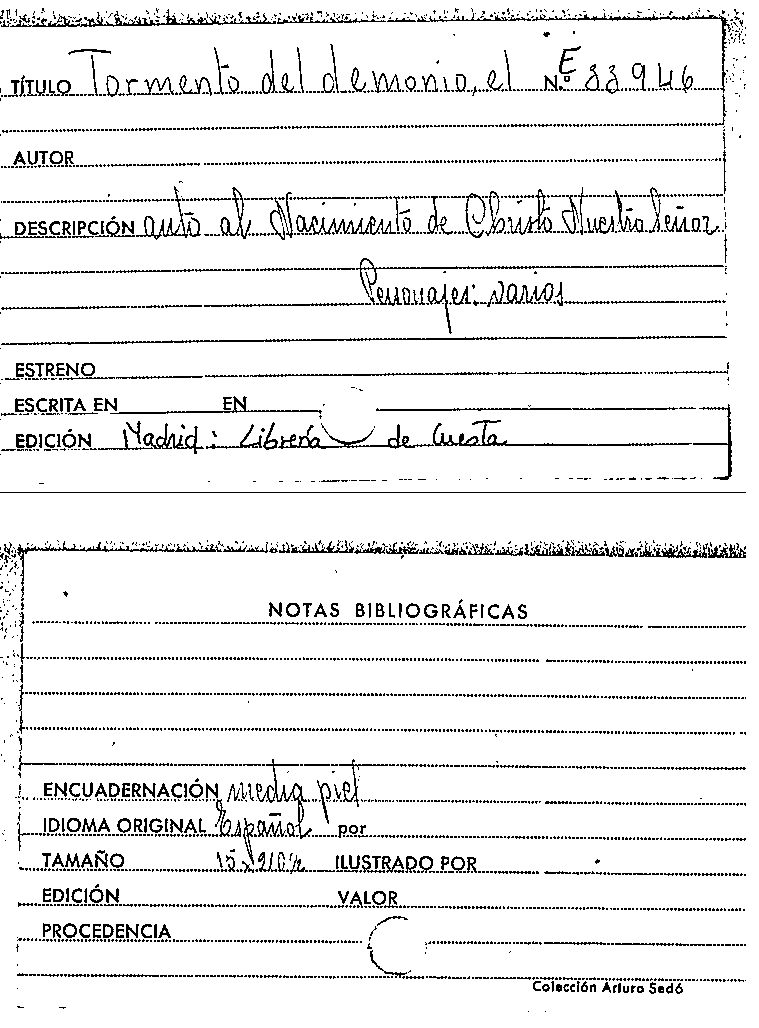 TÍTULO Tormento del demonio, el N.º E 33946
AUTOR
DESCRIPCIÓN auto al Nacimiento de Christo Nuestro Señor
Personajes: varios
ESTRENO
ESCRITA EN EN
EDICIÓN Madrid: Librería de Cuesta
NOTAS BIBLIOGRÁFICAS
ENCUADERNACIÓN media piel
IDIOMA ORIGINAL Español por
TAMAÑO ILUSTRADO POR
EDICIÓN VALOR
PROCEDENCIA
Colección Arturo Sedó